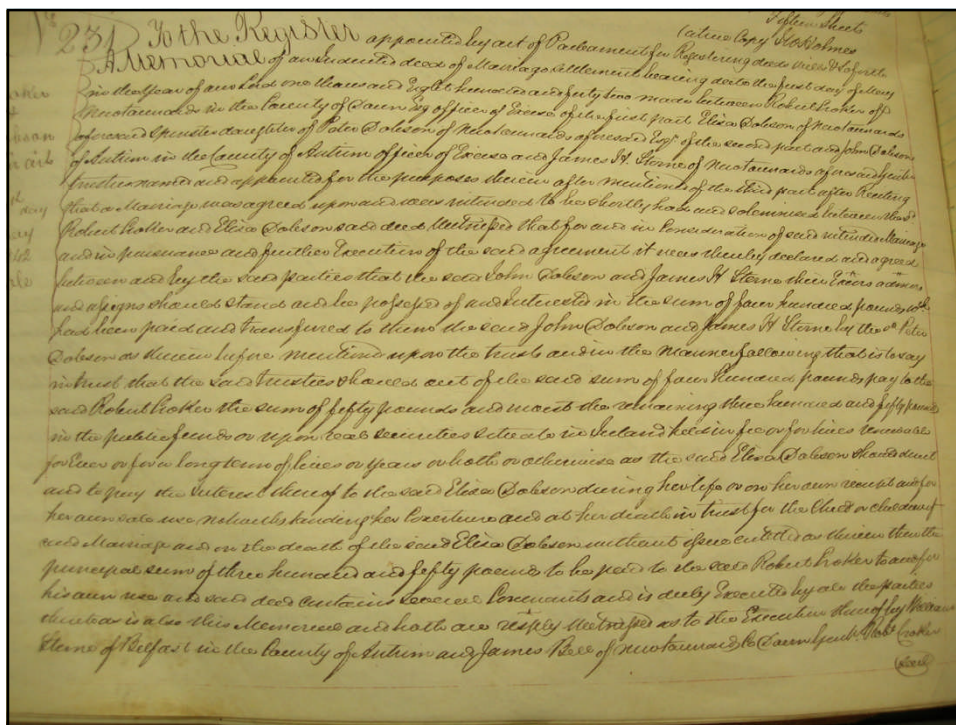 231 To the Register appointed by act of Parliament for Registering deeds Wills & so forth
Fifteen Sheets
(a true Copy Holmes
A Memorial of an Indented deed of Marriage Settlement bearing date the first day of
in the Year of our Lord one thousand Eight hundred and forty two made between Robert Croker of
Newtownards in the County of Down Esq officer of Excise of the first part Eliza Dobson of Newtownards
aforesaid Spinster daughter of Peter Dobson of Newtownards aforesaid Esqr of the second part and John Dobson
of Antrim in the County of Antrim officer of Excise and James H Sterne of Newtownards aforesaid
trustees named and appointed for the purposes therein after mentioned of the third part after Reciting
that a Marriage was agreed upon and was intended to be shortly had and solemnized between the sd
Robert Croker and Eliza Dobson said deed Witnessed that for and in Consideration of said intended Marriage
and in pursuance and further Execution of the said agreement it was thereby declared and agreed
between and by the said parties that the said John Dobson and James H Sterne their Exors admors
and assigns should stand and be possessed of and Interested in the sum of four hundred pounds wch
had been paid and transfered to them the said John Dobson and James H Sterne by the sd Peter
Dobson as therein before mentioned upon the trusts and in the Manner following that is to say
in trust that the said trustees should out of the said sum of four hundred pounds pay to the
said Robert Croker the sum of fifty pounds and invest the remaining three hundred and fifty pounds
in the public funds or upon real securities situate in Ireland held in fee or for lives renewable
for Ever or for a long term of lives or years or both or otherwise as the said Eliza Dobson should direct
and to pay the Interest thereof to the said Eliza Dobson during her life or on her own receipt and for
her own sole use notwithstanding her Coverture and at her death in trust for the Child or children of
said Marriage and on the death of the said Eliza Dobson without issue entitled as therein then the
principal sum of three hundred and fifty pounds to be paid to the said Robert Croker to and for
his own use and said deed contains several Covenants and is duly Executed by all the parties
thereto as is also this Memorial and both are resply Witnessed as to the Execution thereof by William
Sterne of Belfast in the County of Antrim and James Bell of Newtownards Co Down Gent Robt Croker
(seal)